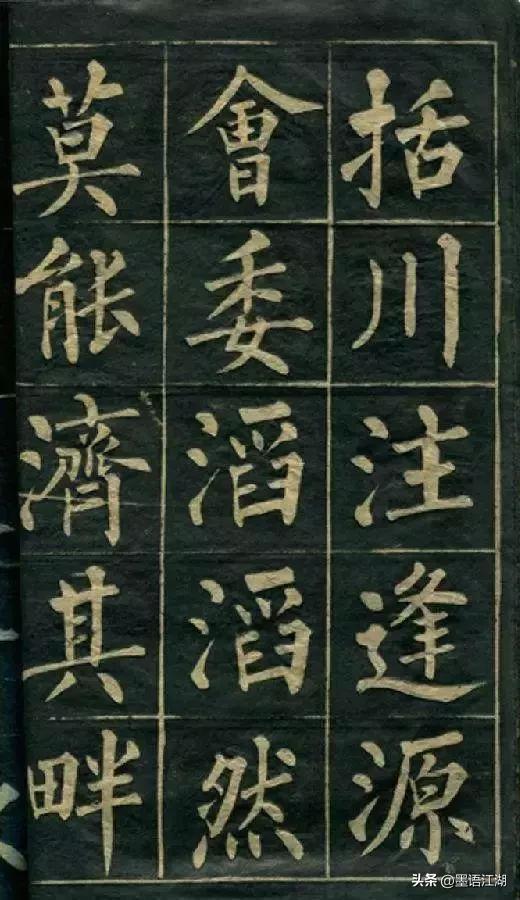 括川注逢源
會委滔滔然
莫能濟其畔
头条 @墨语江湖